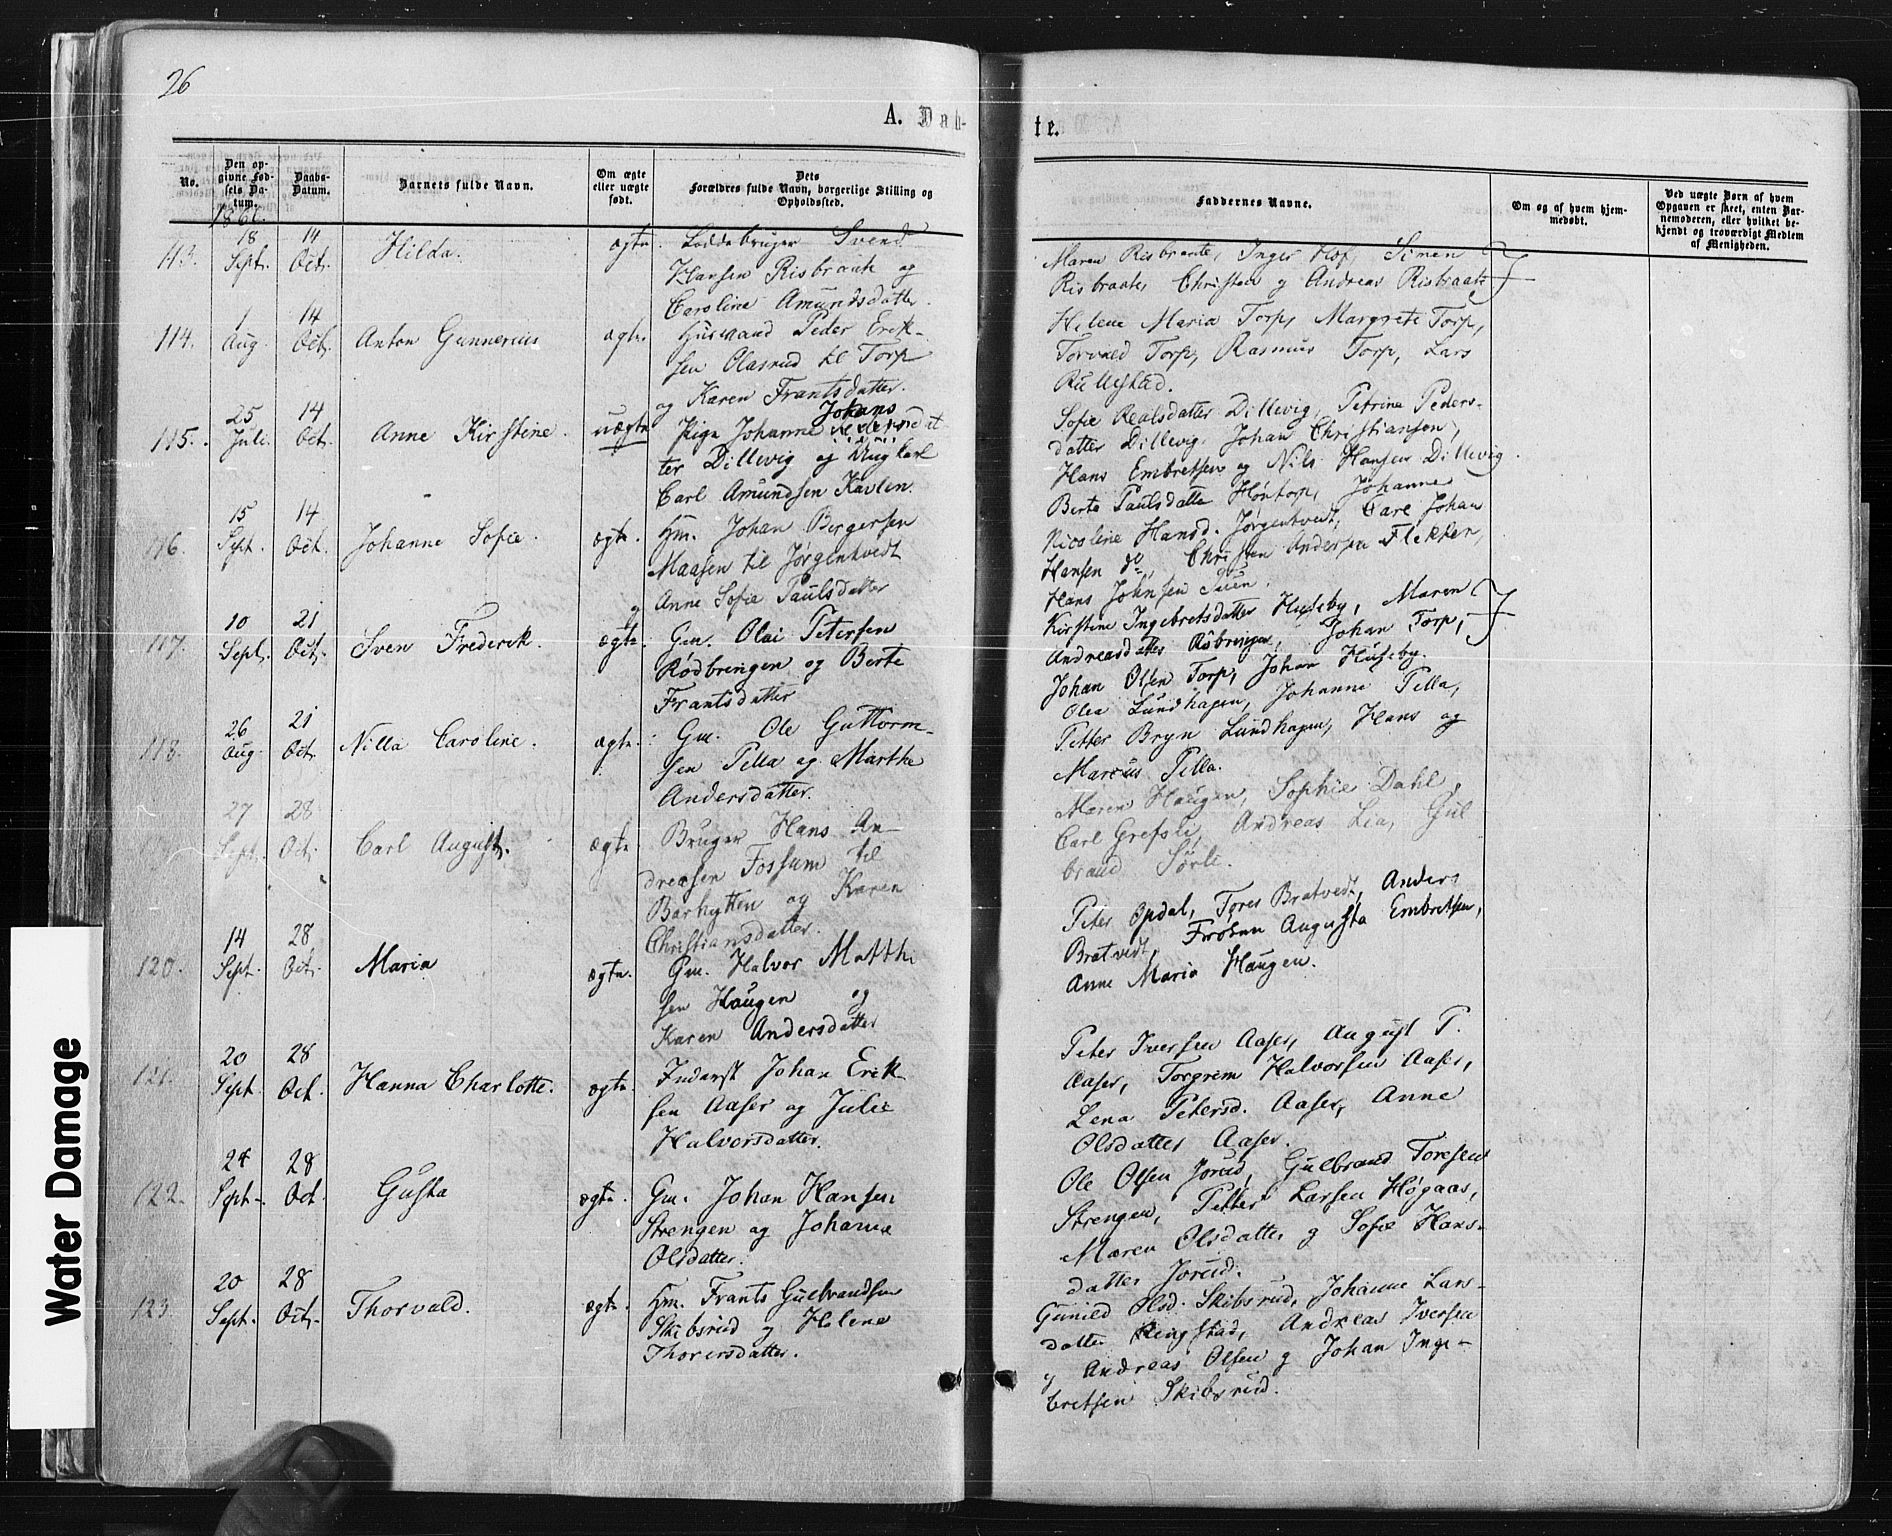 26
A. Dab-
te.
No.
Den op-
givne Fød-
sels Da-
tum.
Daabs-
Datum.
Barnets fulde Navn.
Om ægte
eller uægte
født.
Dets
Forældres fulde Navn, borgerlige Stilling og
Opholdssted.
Faddernes Navne.
Om og af hvem hjem-
medøbt.
Ved uægte Børn af hvem
Opgaven er skeet, enten Bar-
nemoderen, eller hvilket be-
kjendt og troværdigt Medlem
af Menigheden.
113.
18 Sept.
14 Oct.
Hilda.
ægte.
Loddebruger Svend
Hansen Risbraate og
Caroline Amundsdatter.
Maren Risbraate, Inger Hof, Simen
Risbraate, Christen g Andreas Risbraate
114.
1 Aug.
14 Oct.
Anton Gunnerius
ægte.
Husmand Peder Erik-
sen Olasrud til Torp
og Karen Frantsdatter.
Helene Maria Torp, Margrete Torp,
Torvald Torp, Rasmus Torp, Lars
Rullestad.
115.
25 Juli
14 Oct.
Anne Kirstine.
uægte
Johans
Pige Johanne
ter Dillevig og Ungkarl
Carl Amundsen Kavlen.
Sofie Dillevig, Petrine Peders-
datter Dillevig, Johan Christiansen,
Hans Embretsen og Nils Hansen Dillevig.
116.
15 Sept.
14 Oct.
Johanne Sofie.
ægte
Hm. Johan Bergersen
Maasen til Jørgentvedt
g Anne Sofie Paulsdatter
Berte Paulsdatter Høntorp, Johanne
Nicoline Hansd. Jørgentvedt, Carl Johan
Hansen do, Christen Andersen Flekken,
Hans Johnsen
117.
10 Sept.
21 Oct.
Sven Frederik.
ægte.
Gm. Olai Petersen
Rødbrengen og Berte
Frantsdatter
Kirstine Ingebretsdatter Huseby, Maren
Andreasdatter Johan Torp,
Johan Olsen Torp, Johan Huseby.
118.
26 Aug.
21 Oct.
Nilla Caroline.
ægte.
Gm. Ole Guttorm-
sen Tella og Marthe
Andersdatter.
Olea Lundhagen, Johanne Tella,
Petter Bryn Lundhagen, Hans og
Marcus Tella.
27 Sept.
28 Oct.
Carl August.
ægte
Bruger Hans An-
dreasen Fossum til
Barhytten og Karen
Christiansdatter.
Maren Haugen, Sophie Dahl,
Carl Grefsli, Andreas Lia, Gul
brand Sørli.
120.
14 Sept.
28 Oct.
Maria
ægte.
Gm. Halvor Matthi
sen Haugen og
Karen Andersdatter
Peter Opdal, Tores Bratvedt, Anders
Bratvedt, Augusta Embretsen,
Anne Maria Haugen.
121.
20 Sept
28 Oct.
Hanna Charlotte.
ægte.
Inderst Johan Erik-
sen Aaser og Julie
Halvorsdatter.
Peter Iversen Aaser, August P.
Aaser, Torgrem Halvorsen Aaser,
Lena Petersd. Aaser, Anne
Olsdatter Aaser.
122.
24 Sept.
28 Oct
Gusta
ægte.
Gm. Johan Hansen
Strengen og Johanne
Olsdatter.
Ole Olsen Jorud, Gulbrand Toresen
Strengen, Petter Larsen Høgaas,
Maren Olsdatter g Sofie Hans-
datter Jorud.
123.
20 Sept.
28 Oct.
Thorvald.
ægte.
Hm. Frants Gulbrandsen
Skibsrud g Helene
Thorersdatter.
Gunild Olsd. Skibsrud, Johanne Lars-
datter Ringstad, Andreas Iversen
g Andreas Olsen g Johan Inge-
bretsen Skibsrud.
Water Damage